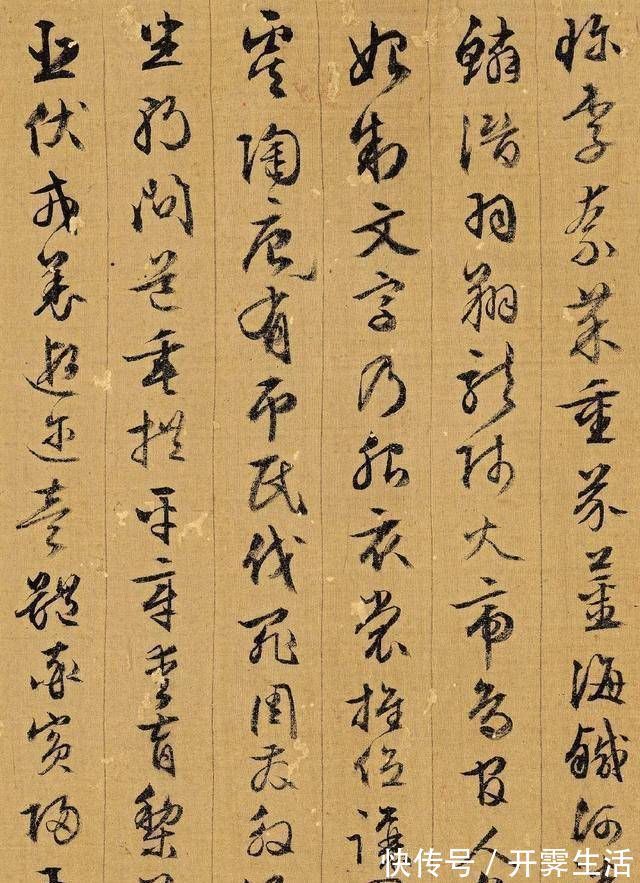 珍李柰菜重芥薑海鹹河
鱗潛羽翔龍師火帝鳥官人
始制文字乃服衣裳推位讓
虞陶唐有弔民伐罪周發殷
坐朝問道垂拱平章愛育黎
臣伏戎羌遐邇壹體率賓歸
快传号 / 开霁生活